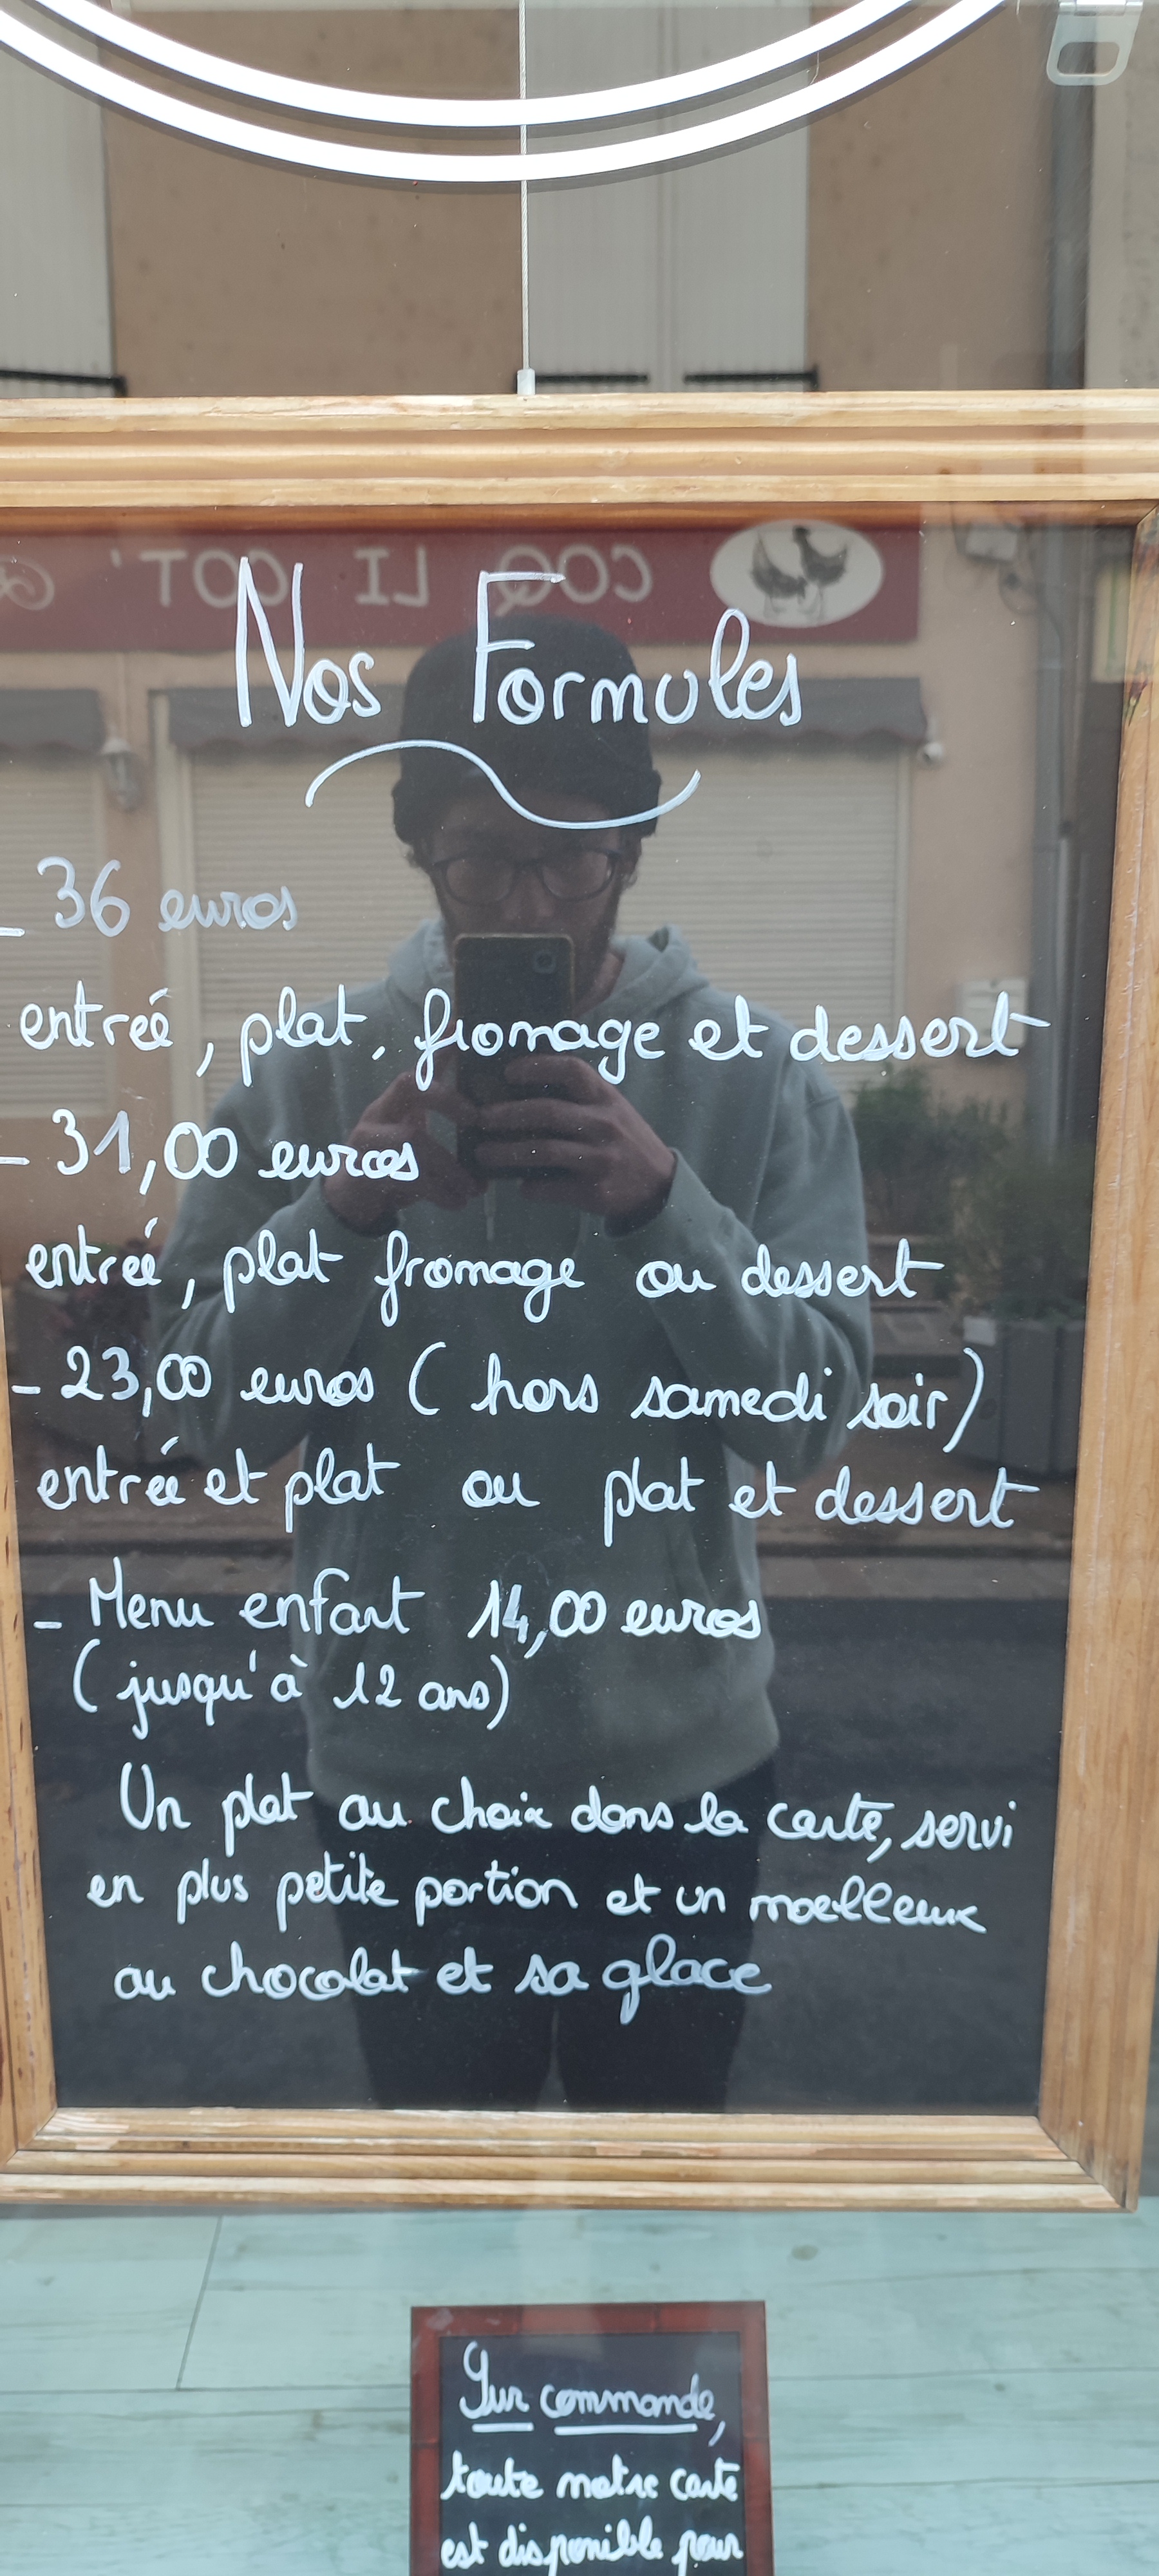 COQ LI COT'
Nos Formules
- 36 euros
entrée, plat, fromage et dessert
- 31,00 euros
entrée, plat fromage ou dessert
- 23,00 euros (hors samedi soir)
entrée et plat ou plat et dessert
- Menu enfant 14,00 euros
(jusqu'à 12 ans)
Un plat au choix dans la carte, servi
en plus petite portion et un moelleux
au chocolat et sa glace
Sur commande,
toute notre carte
est disponible pour